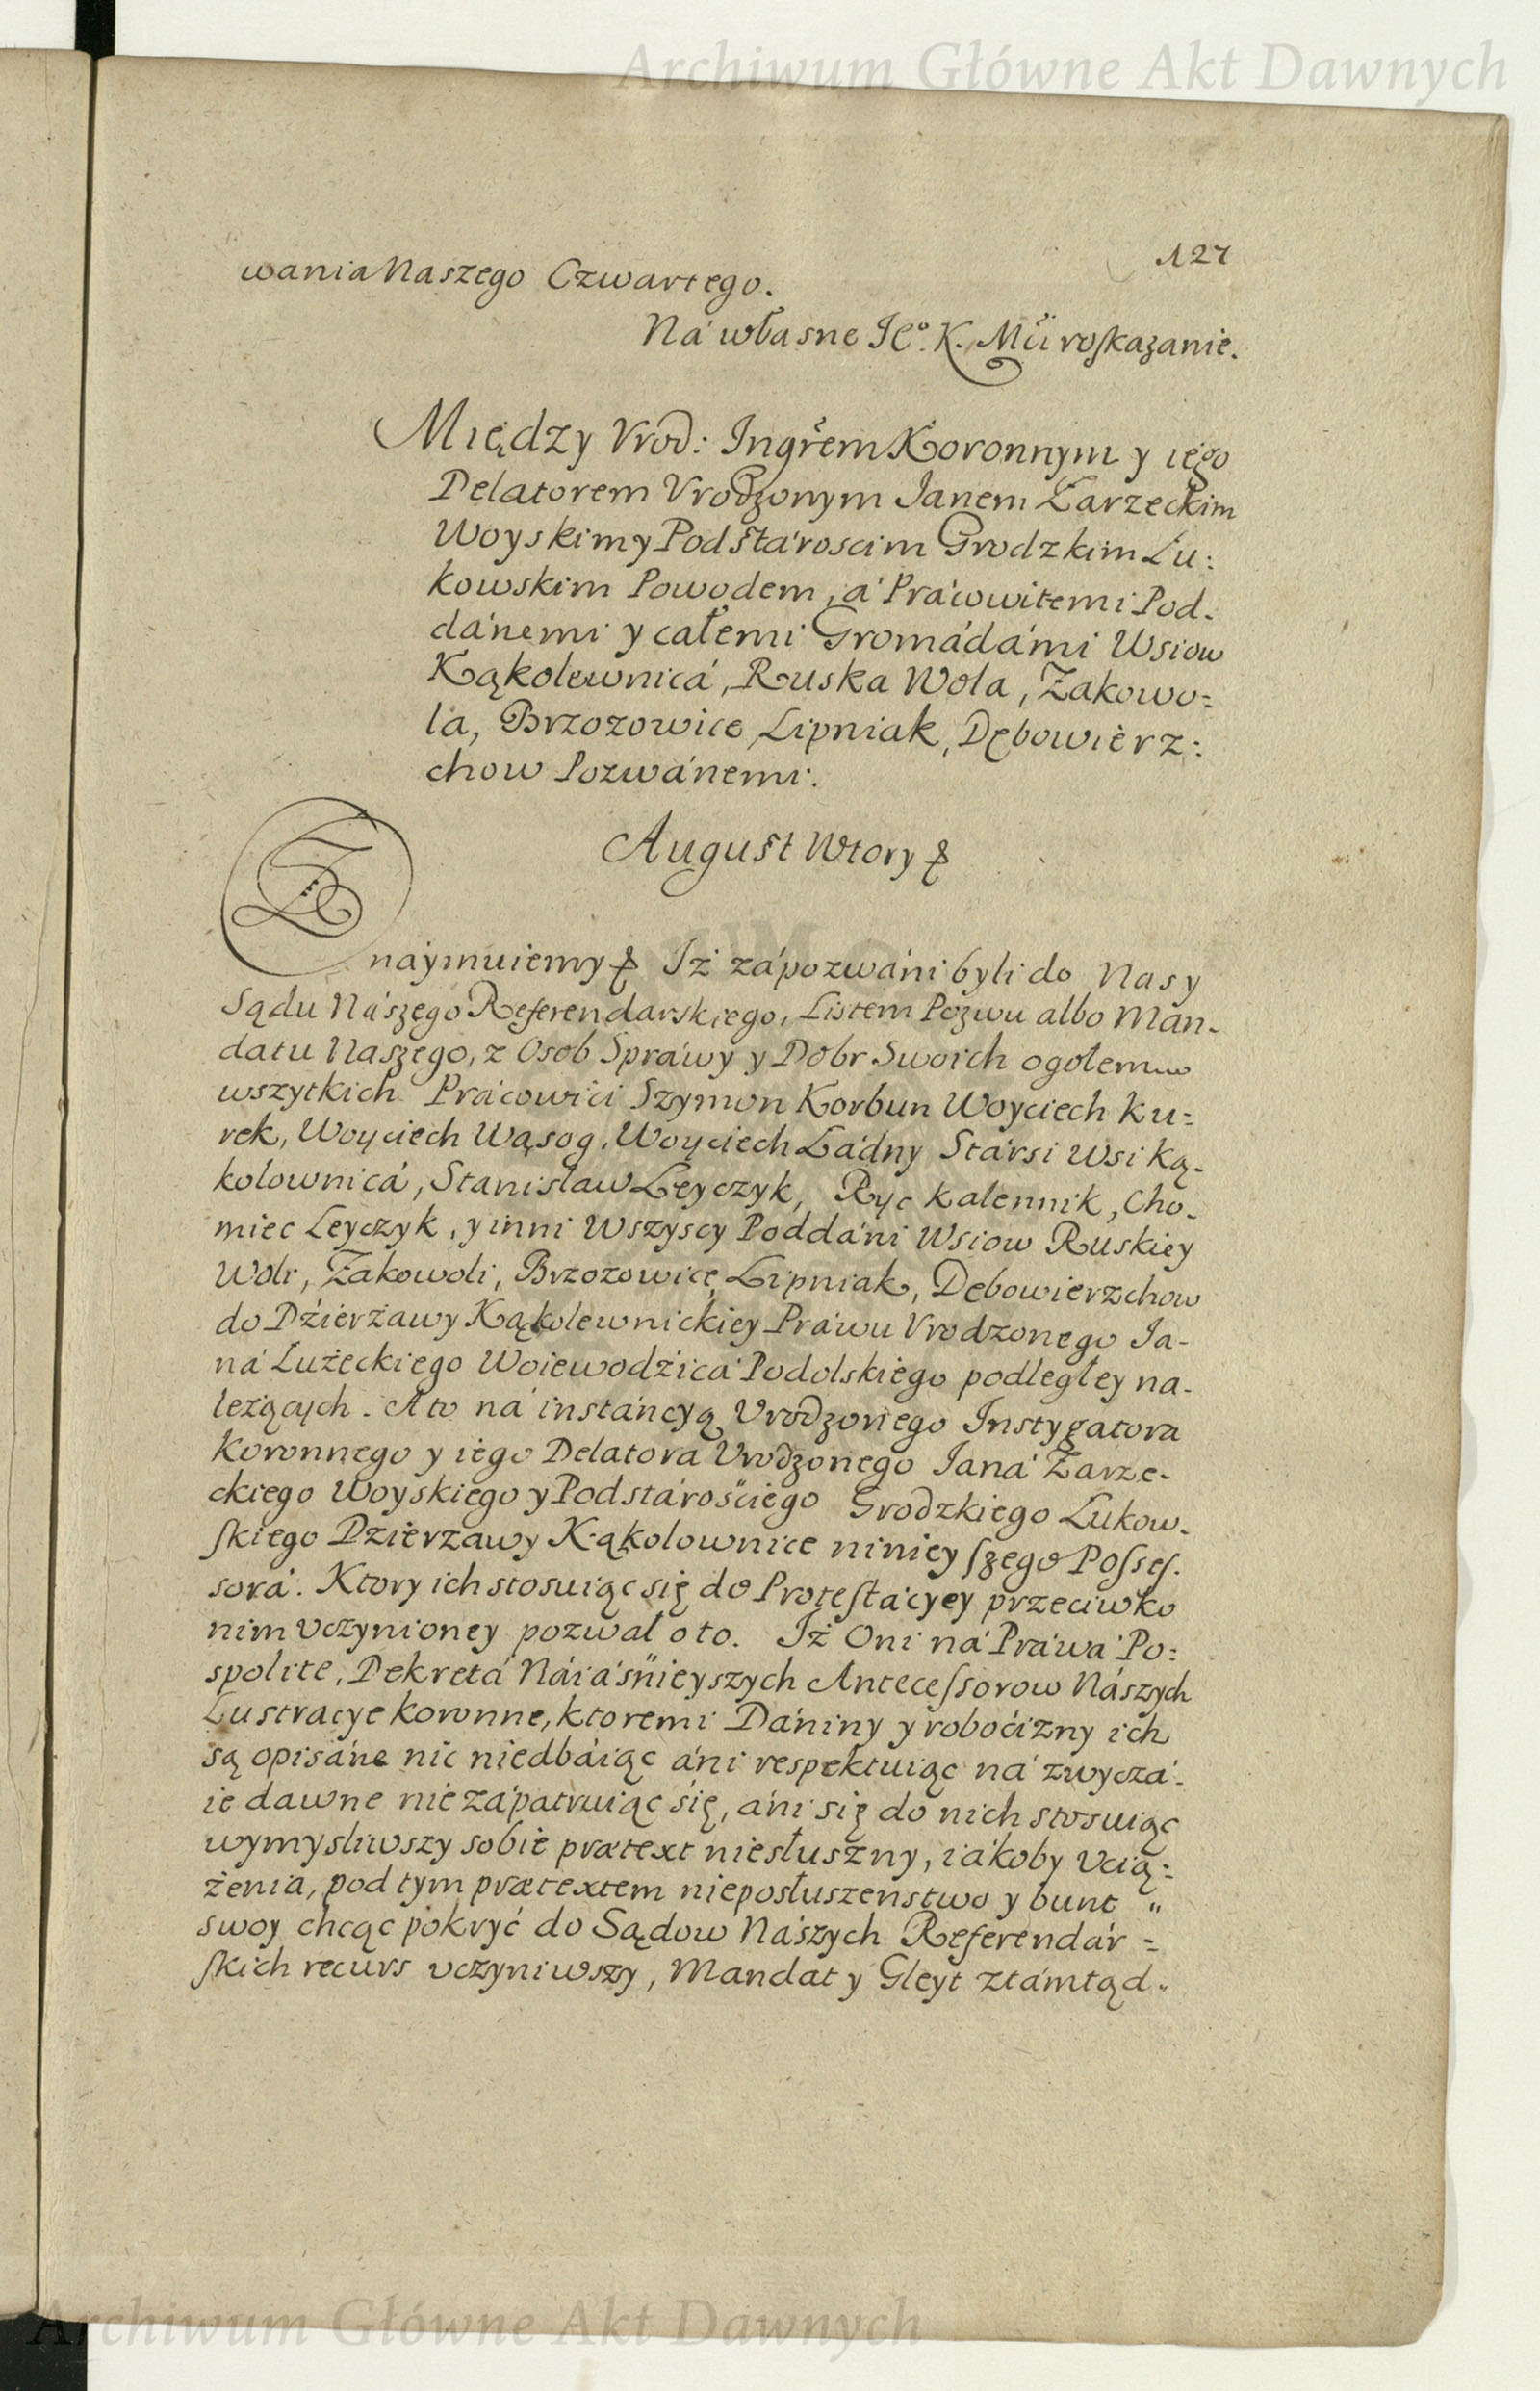 Archiwum Główne Akt Dawnych
127
wania Naszego Czwartego.
Ná własne Je͡o. K. Mći roskazanie.
Między Vrod: Ingrem Koronnym y iego
Delatorem Vrodzonym Janem Zarzeckim
Woyskim y Podstároscim Grodzkim Lu:
kowskim Powodem, á Prácowitemi Pod-
dánemi y całemi Gromádámi Wsiow
Kąkolewnicá, Ruska Wola, Żakowo=
la, Brzozowice, Lipniak, Dębowierz:
chow Pozwánemi.
August Wtory
Znaymuiemy Iż zápozwáni byli do Nas y
Sądu Nászego Referendarskiego, Listem Pozwu albo Man-
datu Naszego, z Osob Spráwy y Dobr Swoich ogołem
wszytkich Prácowići Szymon Korbun Woyciech Ku=
rek, Woyciech Wąsog, Woyciech Ładny Stársi Wsi Ką-
kolownicá, Stanisław Leyczyk, Ryc Kalennik, Cho-
miec Leyczyk, y inni Wszyscy Poddáni Wsiow Ruskiey
Woli, Żakowoli, Brzozowice, Lipniak, Dębowierzchow
do Dzierżawy Kąkolewnickiey Práwu Vrodzonego Ja-
ná Łużeckiego Woiewodźicá Podolskiego podległey na-
leżących. A to ná instáncyą Vrodzonego Instygatora
Koronnego y iego Delatora Vrodzonego Janá Zarze-
ckiego Woyskiego y Podstárościego Grodzkiego Lukow-
skiego Dzierzawy Kąkolownice ninieyszego Posses-
sorá. Ktory ich stosuiąc się do Protestácyey przeciwko
nim vczynioney pozwał o to. Iż Oni ná Práwá Po=
spolite, Dekretá Náiáśnieyszych Antecessorow Nászych
Lustracye koronne, ktoremi Dániny y roboćizny ich
są opisáne nic niedbáiąc áni respektuiąc ná zwyczá-
ie dawne nie zápatruiąc się, áni się do nich stosuiąc
wymysliwszy sobie prætext niesłuszny, iákoby vcią=
żenia, pod tym prætextem nieposłuszenstwo y bunt "
swoy chcąc pokryć do Sądow Nászych Referendár =
skich recurs vczyniwszy, Mandat y Gleyt ztámtąd "
Archiwum Główne Akt Dawnych